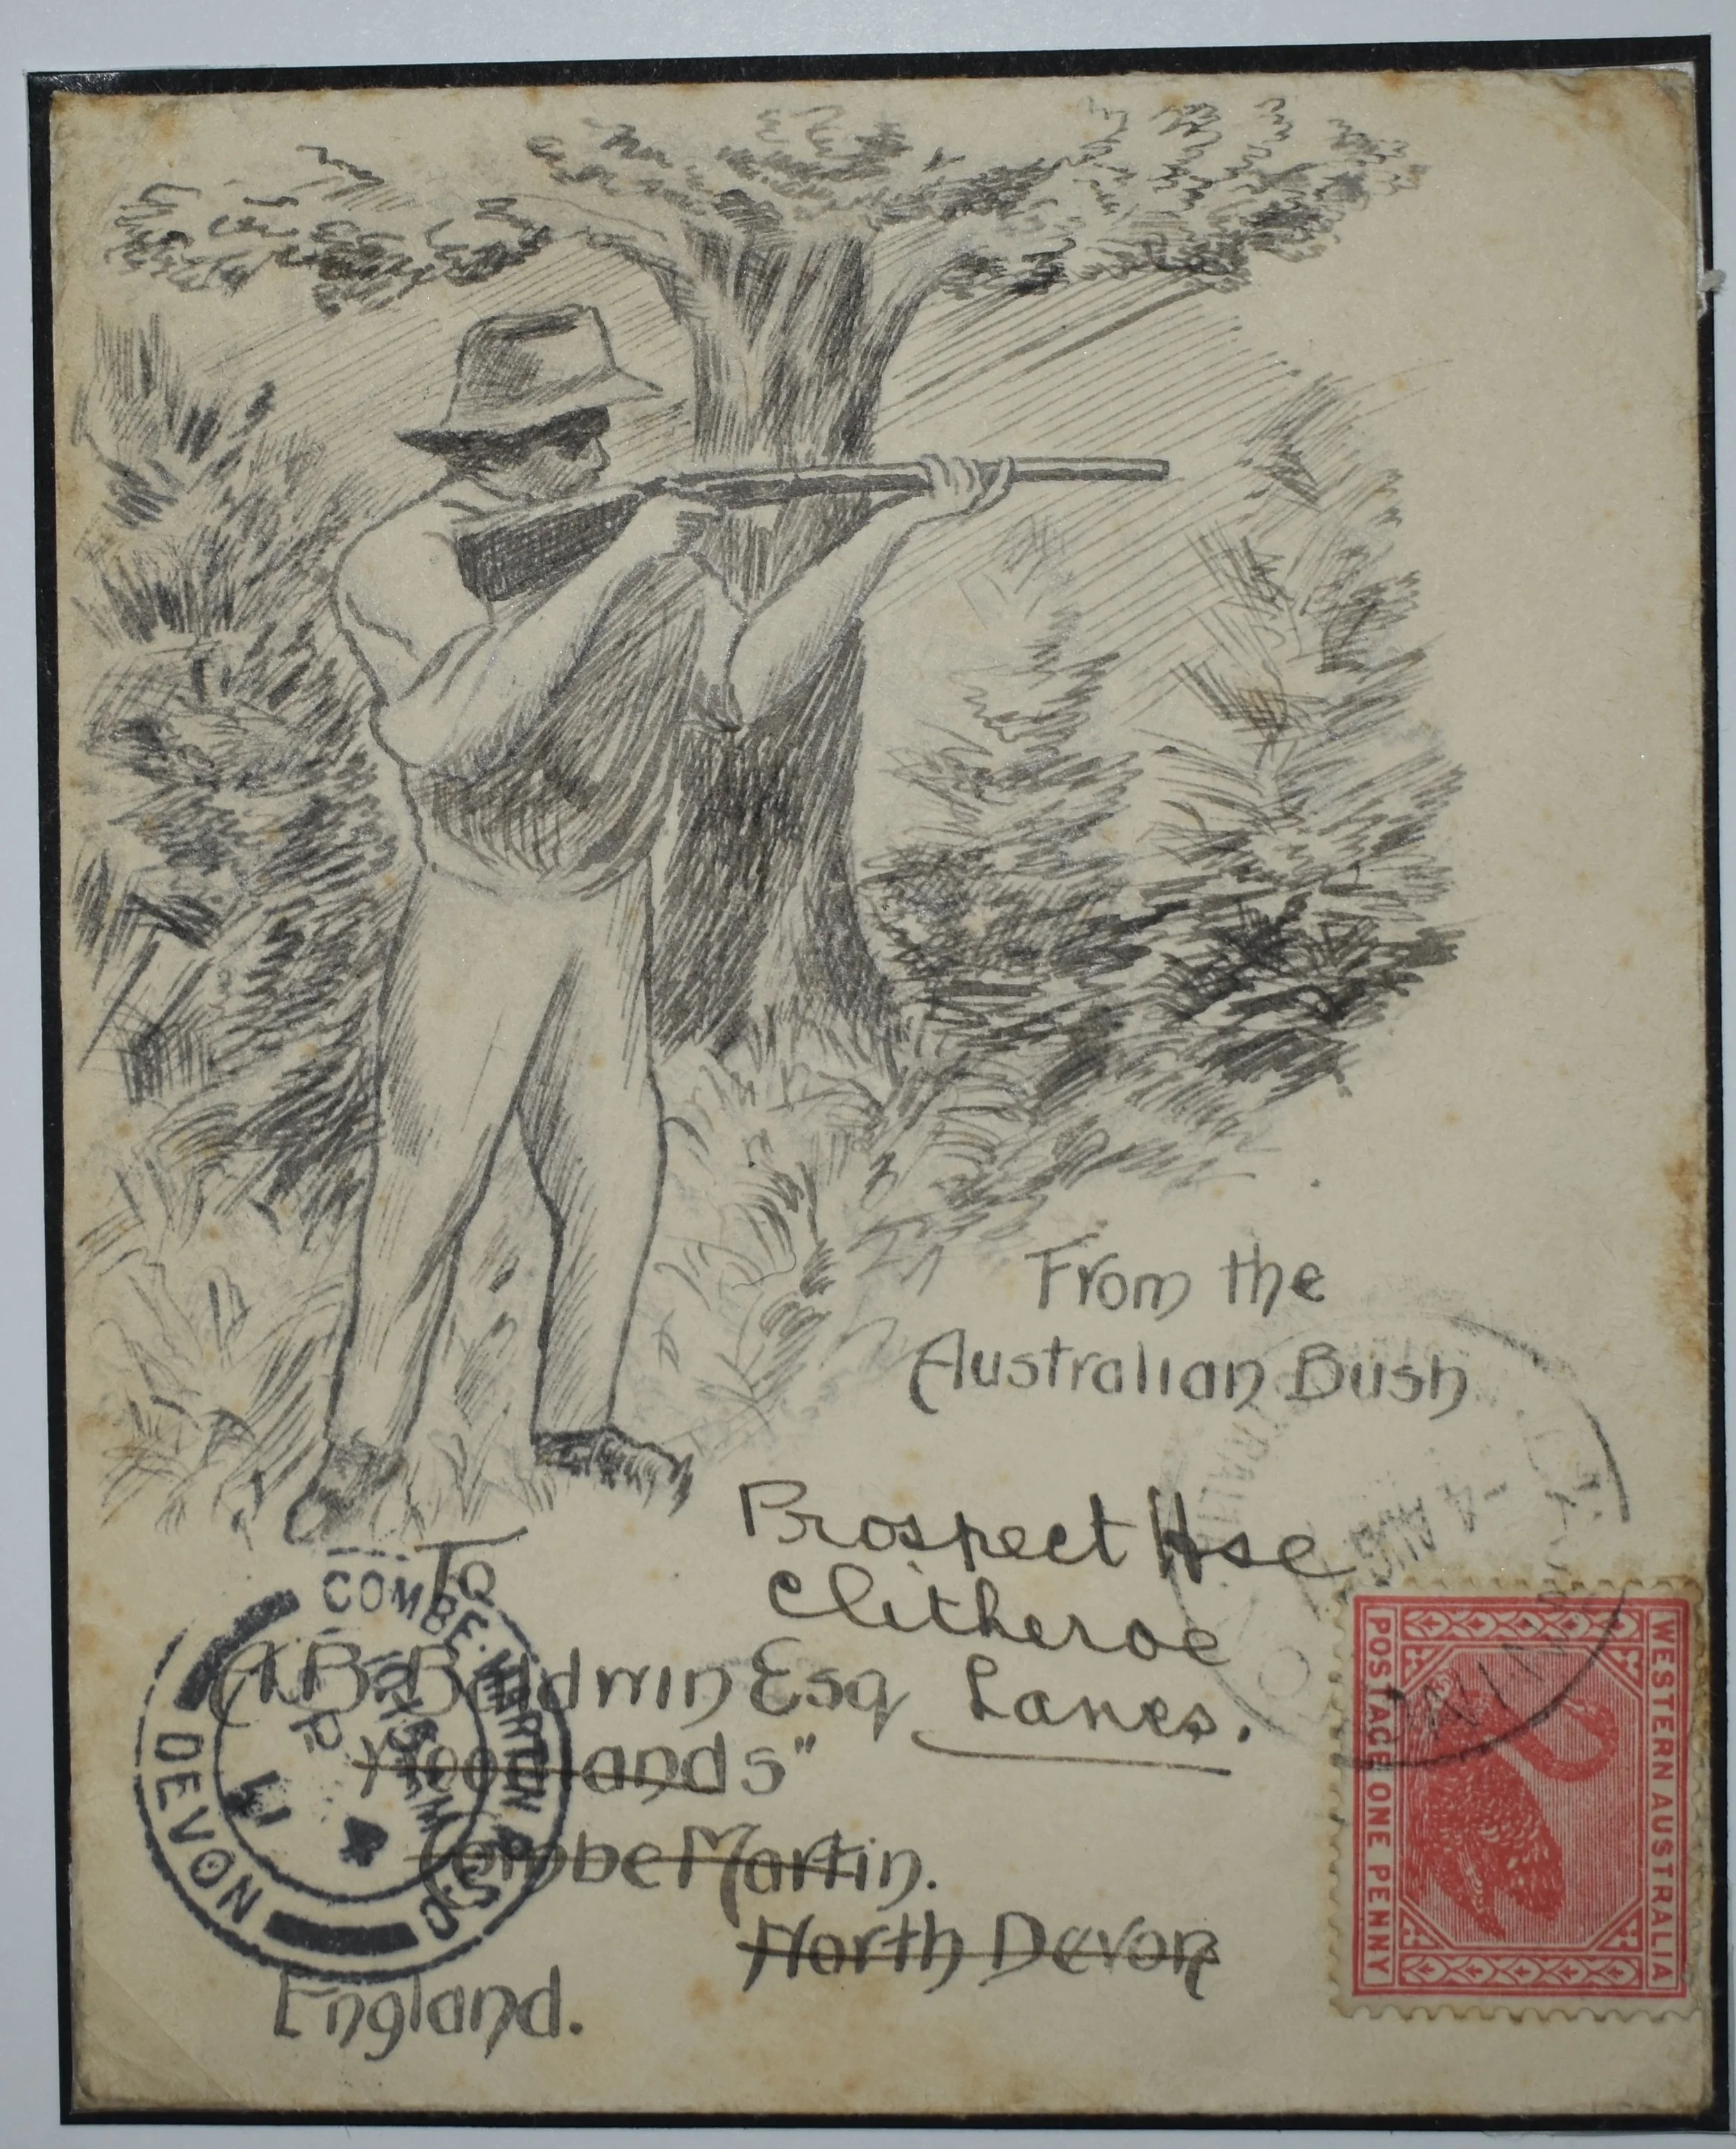 From the
Australian Bush
Prospect Hse
Clitheroe
Lancs.
To
A B Baldwin Esq
"Woodlands"
Combe Martin.
North Devon
England.
COMBE·MARTIN R.S.O
DEVON
4
11
4 AUG
WESTERN AUSTRALIA
POSTAGE ONE PENNY